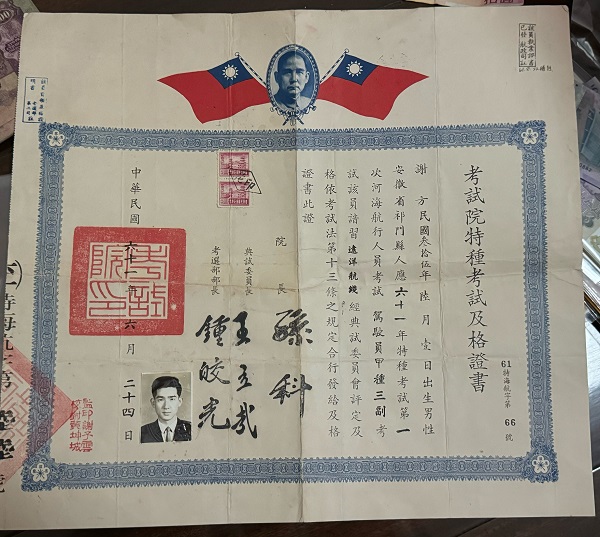 考試院特種考試及格證書
61特海航字第 66 號
謝 方民國叁拾伍年 陸 月 壹 日出生男性
安徽省祁門縣人應六十一年特種考試第一
次河海航行人員考試 駕駛員甲種三副 考
試該員請習遠洋航綫經典試委員會評定及
格依考試法第十三條之規定合行發給及格
證書此證
院長 孫科
典試委員長 王立哉
考選部部長 鍾皎光
中華民國 六十一 年 六 月 二十四 日
考試院印
監印謝子雲
校對顧坤城